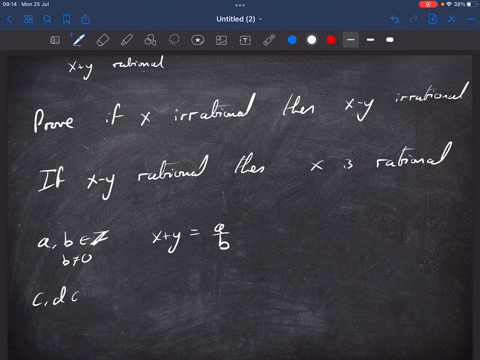 09:14 Mon 25 Jul
38%
Untitled (2)
x+y rational
Prove if x irrational then x-y irrational
If x-y rational then x is rational
a, b ∈ ℤ x+y = a/b
b≠0
c, d c